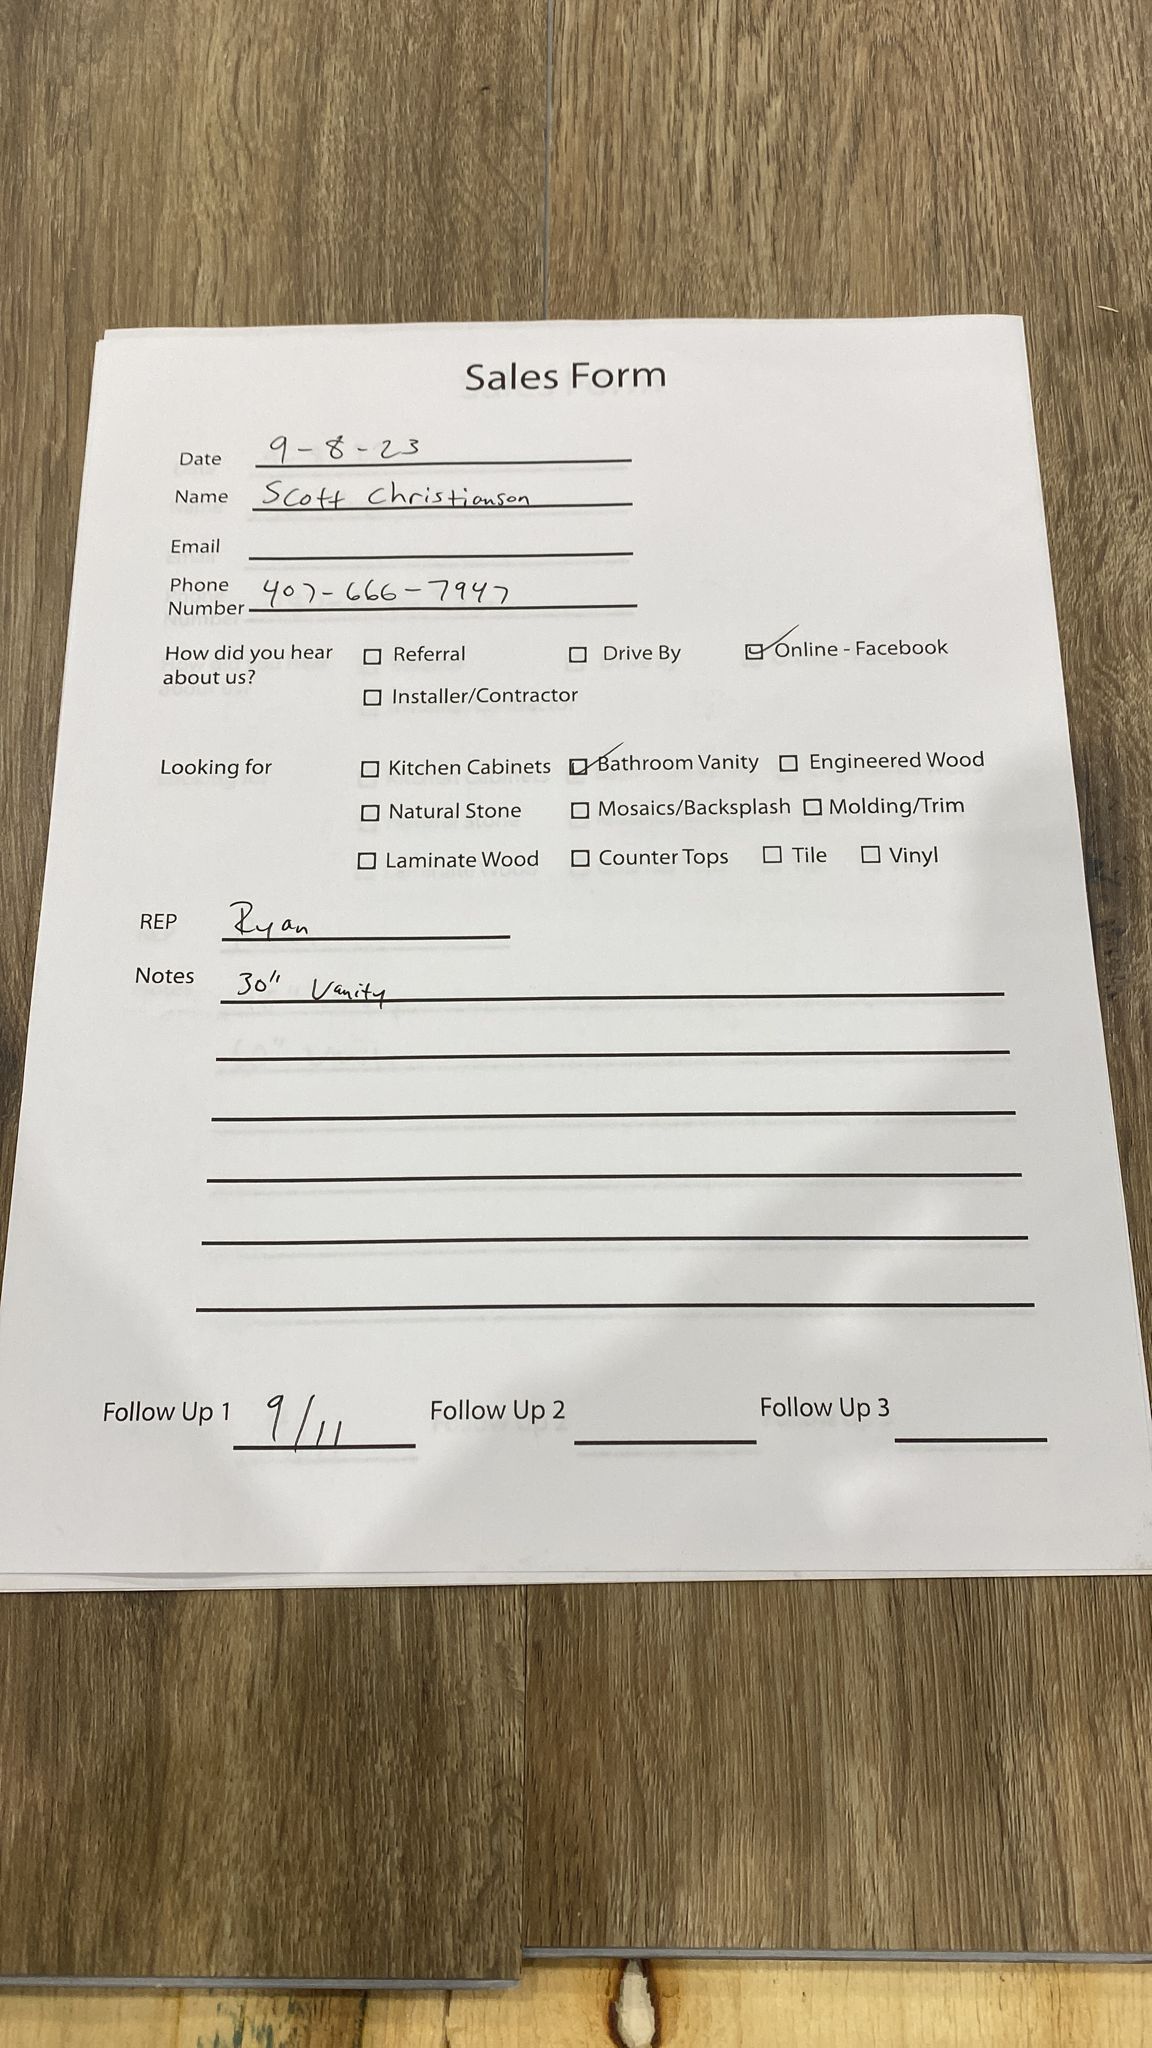 Sales Form
Date 9-8-23
Name Scott Christianson
Email
Phone
Number 407-666-7947
How did you hear
about us?
Referral Drive By Online - Facebook
Installer/Contractor
Looking for Kitchen Cabinets Bathroom Vanity Engineered Wood
Natural Stone Mosaics/Backsplash Molding/Trim
Laminate Wood Counter Tops Tile Vinyl
REP Ryan
Notes 30" Vanity
Follow Up 1 9/11 Follow Up 2 Follow Up 3